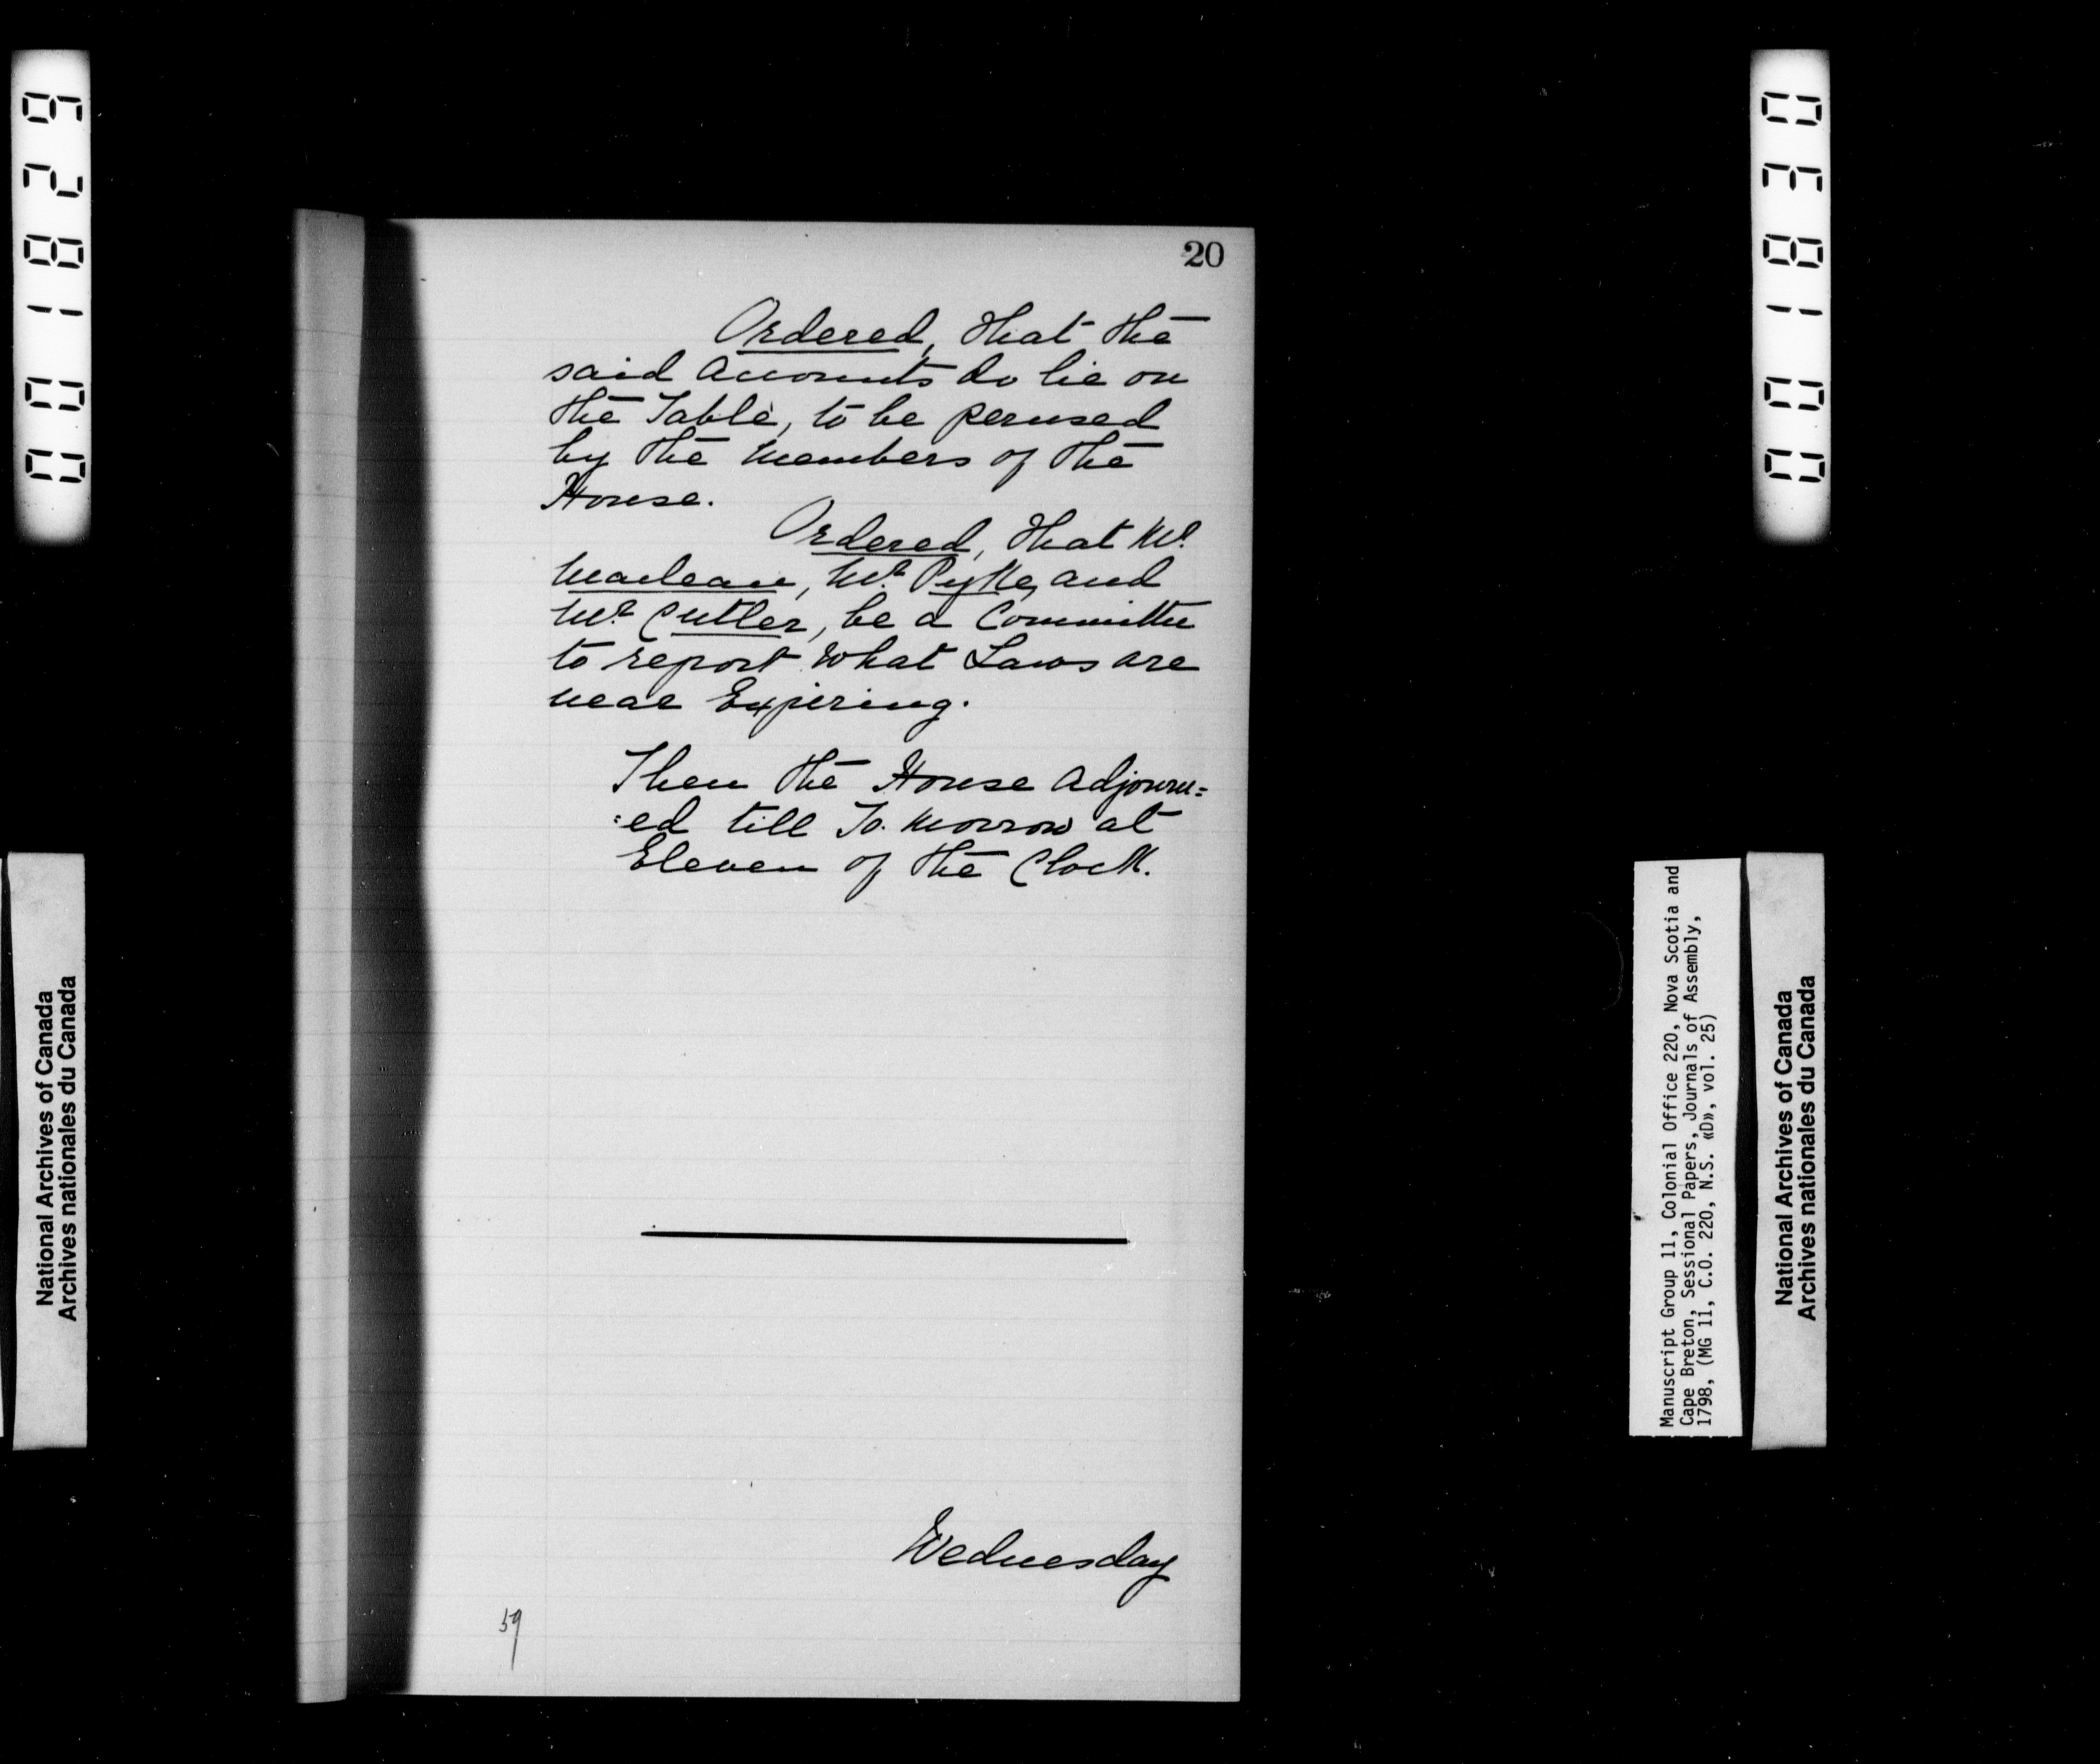 001829
001830
20
Ordered, that the
said Accounts do lie on
the Table, to be perused
by the Members of the
House.
Ordered, that Mr.
Maclean, Mr. Pyke, and
Mr. Cutler, be a Committee
to report what Laws are
near Expiring.
Then the House adjourn=
=ed till To. Morrow at
Eleven of the Clock.
Wednesday
59
National Archives of Canada
Archives nationales du Canada
Manuscript Group 11, Colonial Office 220, Nova Scotia and
Cape Breton, Sessional Papers, Journals of Assembly,
1798, (MG 11, C.O. 220, N.S. «D», vol. 25)
National Archives of Canada
Archives nationales du Canada